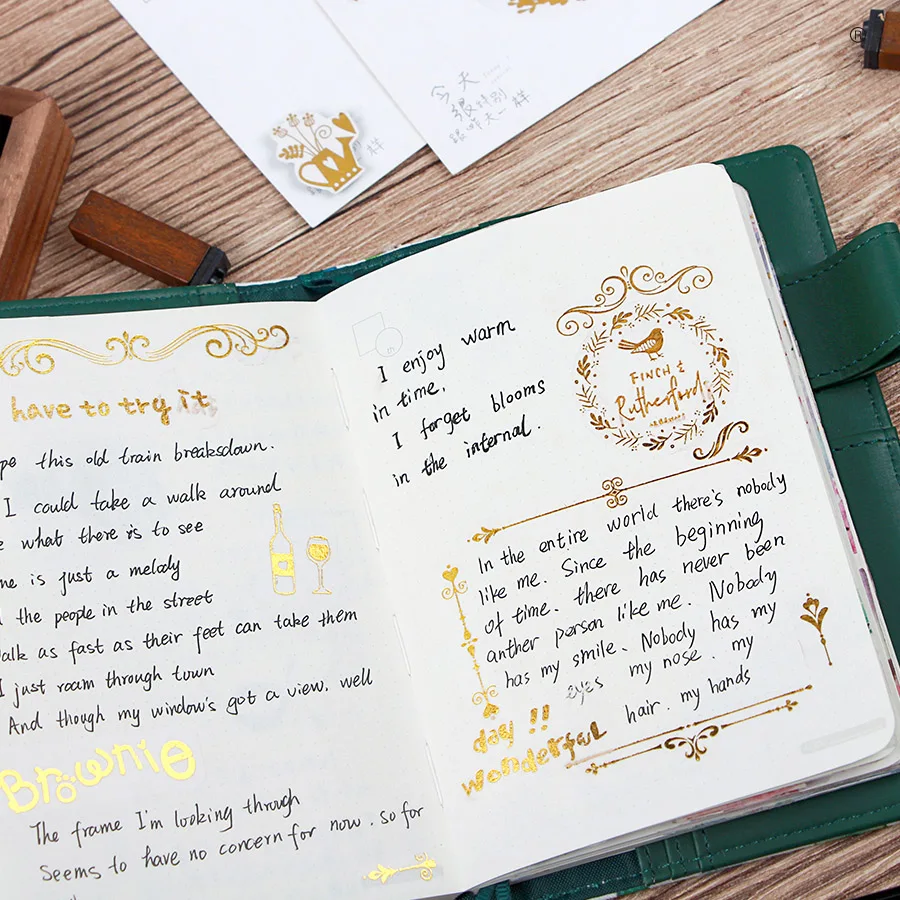 ®
今天
很特别
跟昨天一样
样
have to try it
this old train breaksdown.
I could take a walk around
what there is to see
is just a melody
the people in the street
as fast as their feet can take them
I just roam through town
And though my window's got a view. well
Brownie
The frame I'm looking through
Seems to have no concern for now. so for
I enjoy warm
in time.
I forget blooms
in the internal.
FINCH &
Rutherford
In the entire world there's nobody
like me. Since the beginning
of time. there has never been
anther person like me. Nobody
has my smile. Nobody has my
eyes my nose. my
hair. my hands
day !!
wonderful